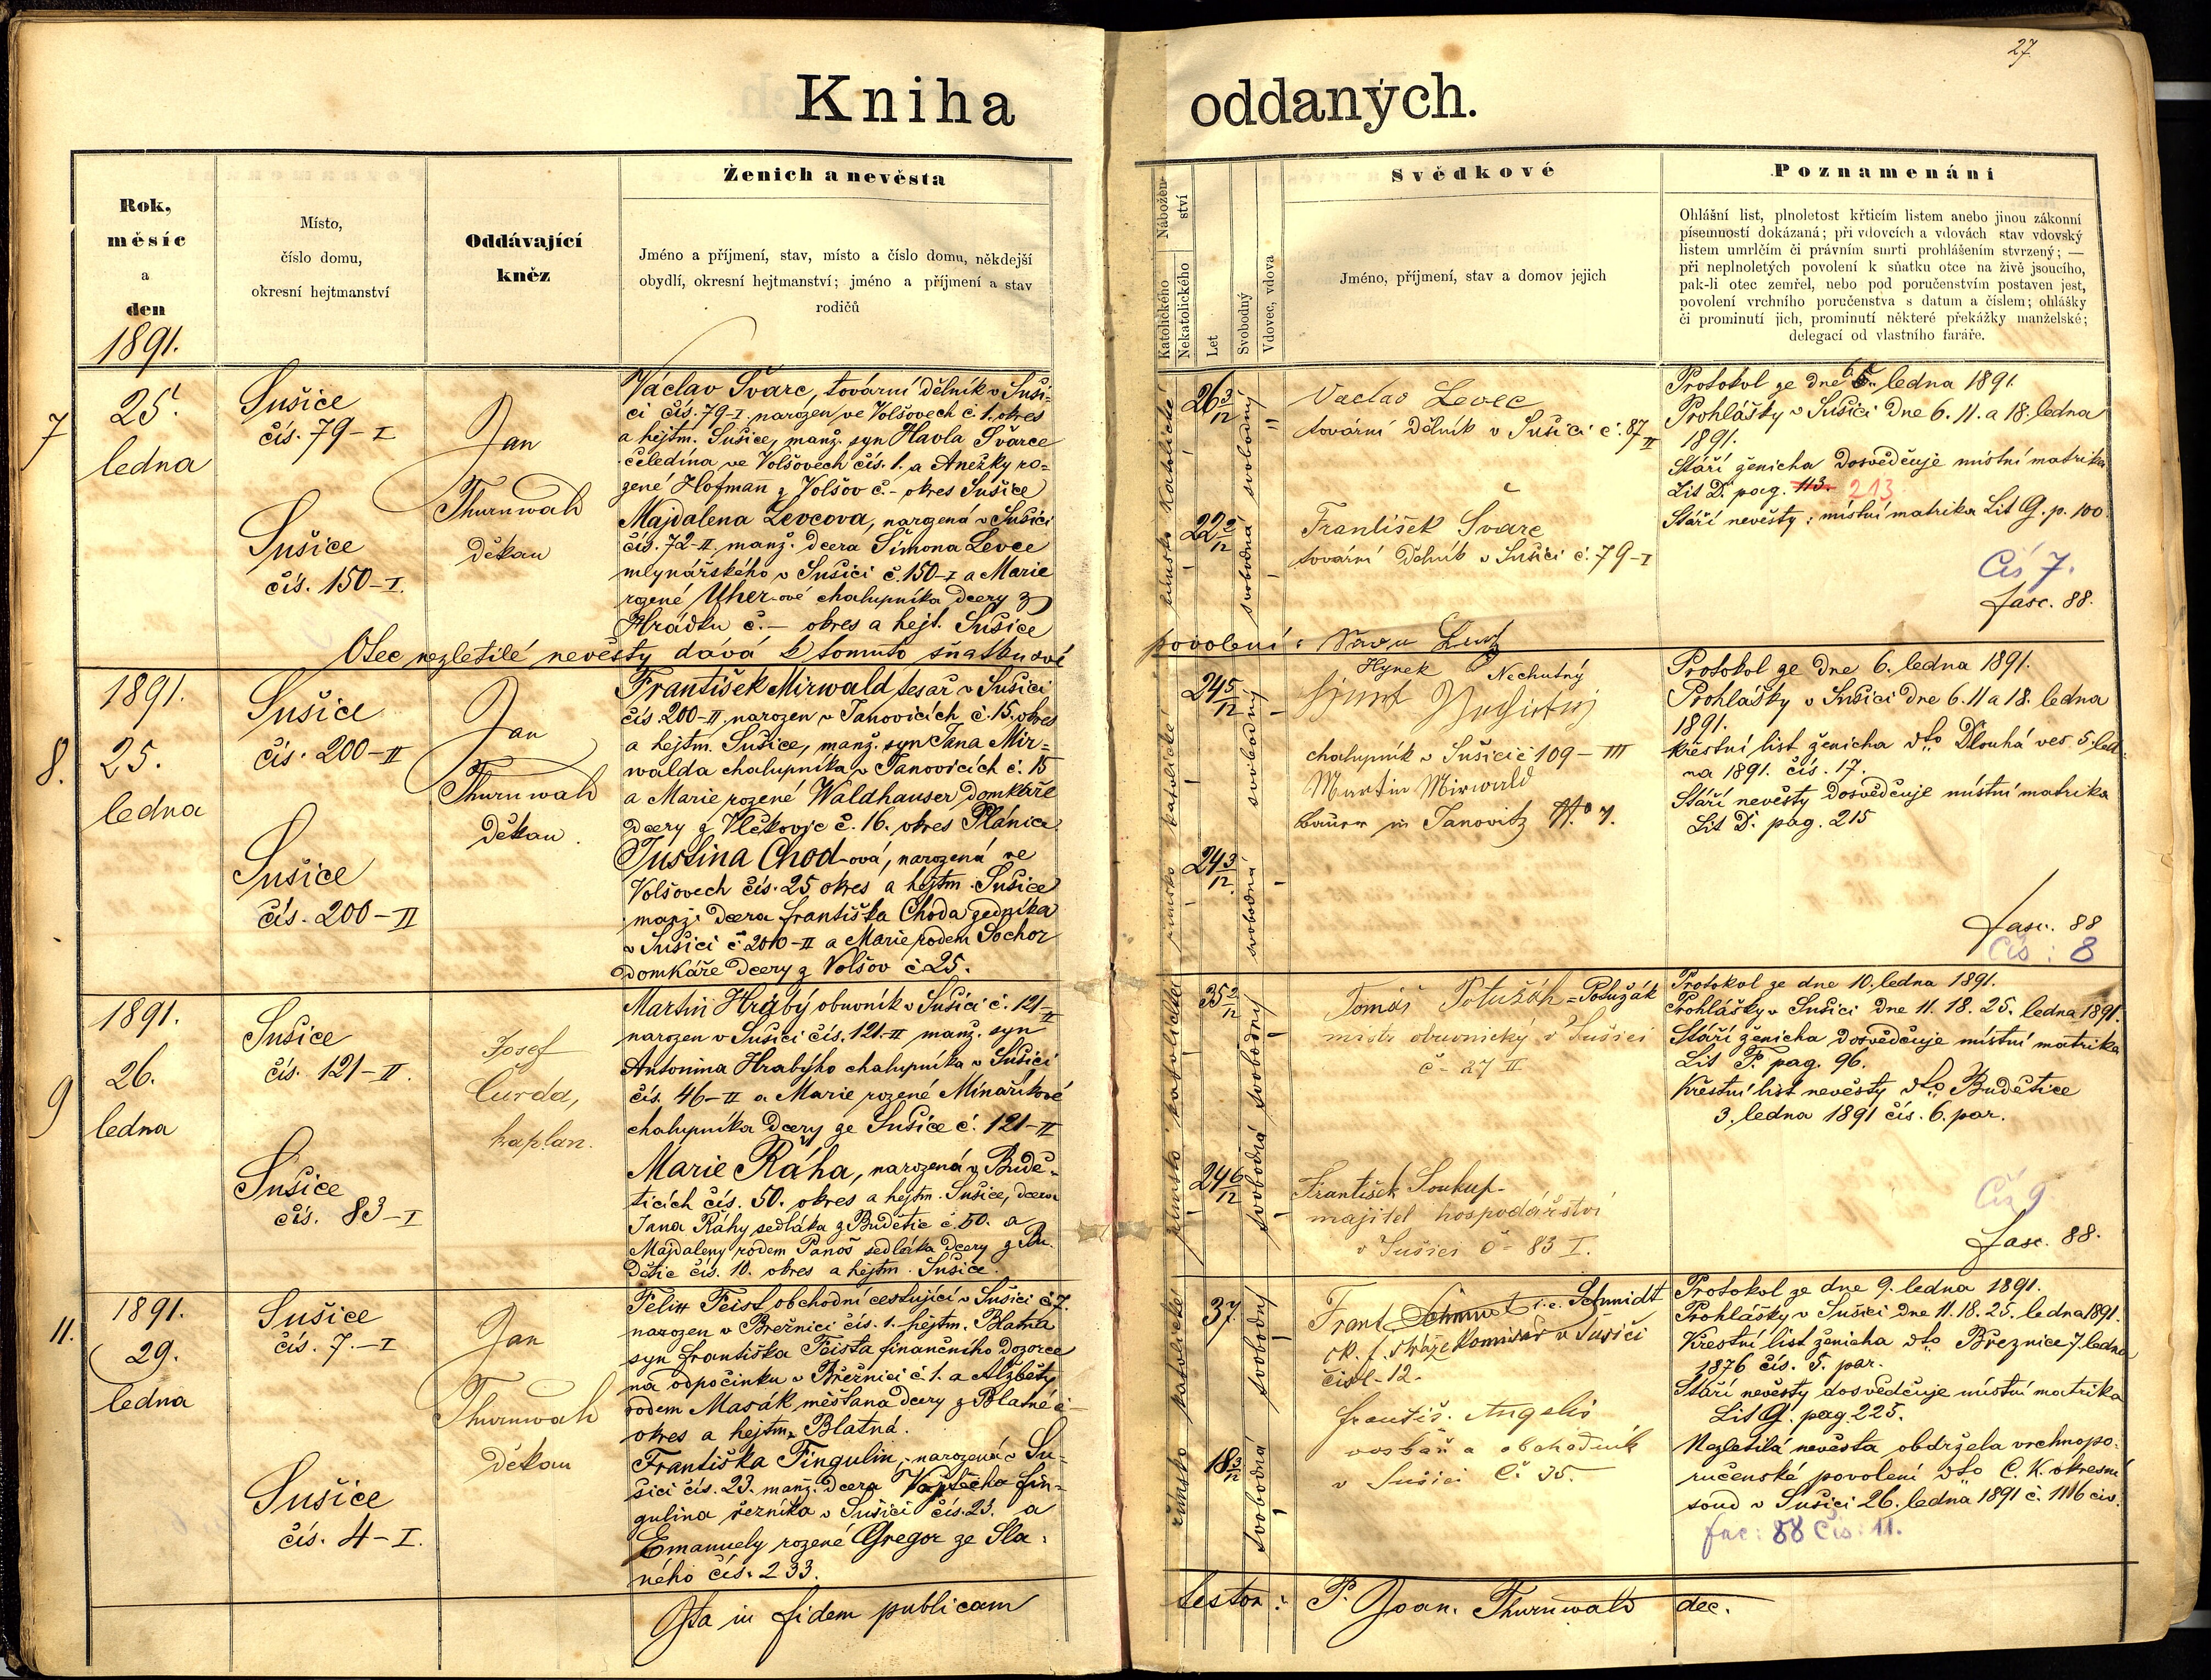 27
Kniha oddaných.
Rok,
měsíc
a
den
1891.
Místo,
číslo domu,
okresní hejtmanství
Oddávající
kněz
Ženich a nevěsta
Jméno a příjmení, stav, místo a číslo domu, někdejší
obydlí, okresní hejtmanství; jméno a příjmení a stav
rodičů
Nábožen-
ství
Katolického
Nekatolického
Let
Svobodný
Vdovec, vdova
Svědkové
Jméno, příjmení, stav a domov jejich
Poznamenání
Ohlášní list, plnoletost křticím listem anebo jinou zákonní
písemností dokázaná; při vdovcích a vdovách stav vdovský
listem umrlčím či právním smrti prohlášením stvrzený; —
při neplnoletých povolení k sňatku otce na živě jsoucího,
pak-li otec zemřel, nebo pod poručenstvím postaven jest,
povolení vrchního poručenstva s datum a číslem; ohlášky
či prominutí jich, prominutí některé překážky manželské;
delegací od vlastního faráře.
7
25.
ledna
Sušice
čís. 79-I
Sušice
čís. 150-I.
Jan
Thurnwald
děkan
Václav Švarc, tovární dělník v Suši-
ci čís. 79-I. narozen ve Volšovech č. 1. okres
a hejtm. Sušice, manž. syn Havla Švarce
čeledína ve Volšovech čís. 1. a Anežky ro-
zené Hofmann z Volšov č.- okres Sušice
Majdalena Levcova, narozená v Sušici
čís. 72-II. manž. dcera Šimona Levce
mlynářského v Sušici č. 150-I a Marie
rozené Uher-ové chalupníka dcery z
Hrádku č.— okres a hejt. Sušice
Otec nezletilé nevěsty dává k tomuto sňatku své
povolení:
římsko katolické
26 3/12
svobodný
22 2/12
svobodná
Vaclav Levec
tovární dělník v Sušici č. 87 II
František Švarc
tovární dělník v Sušici č. 79-I
Protokol ze dne 6. ledna 1891.
Prohlášky v Sušici dne 6. 11. a 18. ledna
1891.
Stáří ženicha dosvědčuje místní matrika
Lit D. pag. 113. 213
Stáří nevěsty: místní matrika Lit G. p. 100
Čís 7.
fasc. 88.
8.
1891.
25.
ledna
Sušice
čís. 200-II
Sušice
čís. 200-II
Jan
Thurnwald
děkan.
František Mirwald tesař v Sušici
čís. 200-II. narozen v Janovicích č. 15. okres
a hejtm. Sušice, manž. syn Jana Mir-
walda chalupníka v Janovicích č. 15
a Marie rozené Waldhauser domkáře
dcery z Vlčkovic č. 16. okres Plánice
Justina Chod-ová, narozená ve
Volšovech čís. 25 okres a hejtm. Sušice
manž. dcera Františka Choda zedníka
v Sušici č. 200-II a Marie rodem Sochor
domkáře dcery z Volšov č. 25.
římsko katolické
24 5/12
svobodný
24 3/12
svobodná
Hynek Nechutný
chalupník v Sušici č 109-III
Martin Mirwald
Bauer in Janovitz No 7.
Protokol ze dne 6. ledna 1891.
Prohlášky v Sušici dne 6. 11 a 18. ledna
1891.
Křestní list ženicha dto Dlouhá ves. 5. led-
na 1891. čís. 17.
Stáří nevěsty dosvědčuje místní matrika
Lit D. pag. 215
fasc. 88
Čís: 8
9
1891.
26.
ledna
Sušice
čís. 121-II.
Sušice
čís. 83-I
Josef
Curda,
kaplan.
Martin Hrabý obuvník v Sušici č. 121-II
narozen v Sušici čís. 121-II manž. syn
Antonina Hrabýho chalupníka v Sušici
čís. 46-II a Marie rozené Minaříkové
chalupníka dcery ze Sušice č. 121-II
Marie Ráha, narozená v Budě-
ticích čís. 50. okres a hejtm. Sušice, dcera
Jana Ráhy sedláka z Budětic č. 50. a
Majdaleny rodem Panoš sedláka dcery z Bu-
dětic čís. 10. okres a hejtm. Sušice.
římsko katolické
35 2/12
svobodný
24 6/12
svobodná
Tomáš Potužák = Potužák
mistr obuvnický v Sušici
č- 27 II
František Soukup-
majitel hospodářství
v Sušici č- 83 I.
Protokol ze dne 10. ledna 1891.
Prohlášky v Sušici dne 11. 18. 25. ledna 1891.
Stáří ženicha dosvědčuje místní matrika
Lit P. pag. 96.
Křestní list nevěsty dto Budětice
3. ledna 1891 čís. 6. par.
Čís 9
fasc. 88.
11.
1891.
29.
ledna
Sušice
čís. 7.-I
Sušice
čís. 4-I.
Jan
Thurnwald
děkan
Felix Feist obchodní cestující v Sušici č 7.
narozen v Březnici čís. 1. hejtm. Blatná
syn Františka Feista finančního dozorce
na odpočinku v Březnici č. 1. a Alžběty
rodem Masák měšťana dcery z Blatné č-
okres a hejtm. Blatná.
Františka Fingulin, narozená v Su-
šici čís. 23. manž. dcera Vojtěcha Fin-
gulina řezníka v Sušici čís. 23. a
Emanuely rozené Gregor ze Sla-
ného čís. 233.
římsko katolické
37.
svobodný
18 3/12
svobodná
Frant. Schmidt i.e. Schmidt
ck. f. stráže komisař v Sušici
čísl- 12-
František Angelis
voskař a obchodník
v Sušici č. 35.
Protokol ze dne 9. ledna 1891.
Prohlášky v Sušici dne 11. 18. 25. ledna 1891.
Křestní list ženicha dto Březnice 7. ledna
1876 čís. 5. par.
Stáří nevěsty dosvědčuje místní matrika
Lit G. pag. 225.
Nezletilá nevěsta obdržela vrchnopo-
ručenské povolení dto C. K. okresní
soud v Sušici 26. ledna 1891 č. 1116 civ.
fac: 88 Čís: 11.
Ita in fidem publicam
testor: P. Joan. Thurnwald dec.